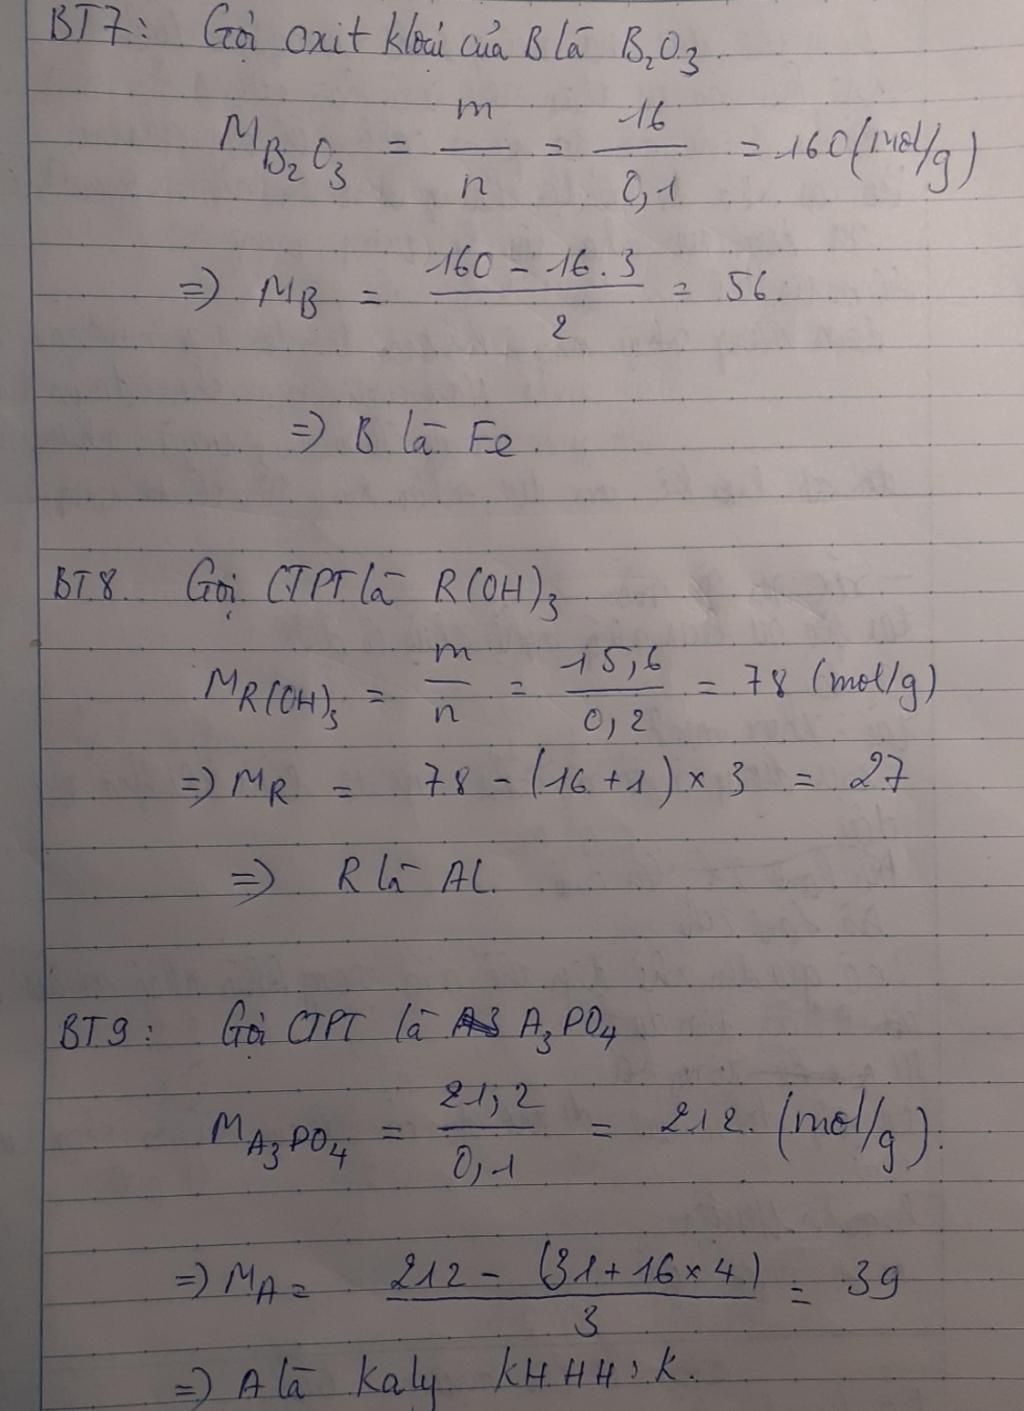 BT7: Gọi oxit kloại của B là B₂O₃.
M_B₂O₃ = m/n = 16/0,1 = 160 (mol/g)
=> M_B = (160 - 16.3)/2 = 56.
=> B là Fe
BT8. Gọi CTPT là R(OH)₃
M_R(OH)₃ = m/n = 15,6/0,2 = 78 (mol/g)
=> M_R = 78 - (16+1) x 3 = 27
=> R là Al.
BT9: Gọi CTPT là A₃PO₄
M_A₃PO₄ = 21,2/0,1 = 212. (mol/g).
=> M_A = (212 - (31+16x4))/3 = 39
=> A là Kaly KHHH: K.